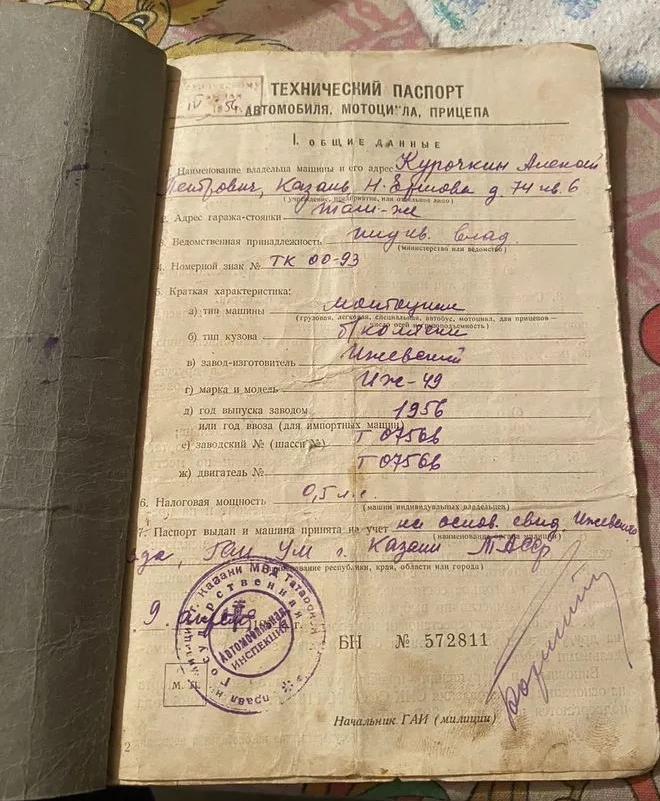 IV 56
ТЕХНИЧЕСКИЙ ПАСПОРТ
АВТОМОБИЛЯ, МОТОЦИКЛА, ПРИЦЕПА
I. ОБЩИЕ ДАННЫЕ
Наименование владельца машины и его адрес Курочкин Алексей
Петрович, Казань Н-Ершова д. 74 кв. 6
(учреждение, предприятие, или отдельное лицо)
2. Адрес гаража-стоянки там-же
3. Ведомственная принадлежность индив. влад.
(министерство или ведомство)
4. Номерной знак № ТК 00-93
5. Краткая характеристика:
а) тип машины мотоцикл
(грузовая, легковая, специальная, автобус, мотоцикл, для прицепов —
число осей и грузоподъемность)
б) тип кузова б/коляски
в) завод-изготовитель Ижевский
г) марка и модель Иж-49
д) год выпуска заводом 1956
или год ввоза (для импортных машин)
е) заводский № (шасси №) Т 0756в
ж) двигатель № Т 0756в
6. Налоговая мощность 0,5 л.с.
(машин индивидуальных владельцев)
7. Паспорт выдан и машина принята на учет на основ. свид. Ижевского
(наименование органа милиции)
ГАИ УМ г. Казани ТАССР
(наименование республики, края, области или города)
9. апреля 19 г.
г. Казани МВД Татарской
Государственная
АВТОМОБИЛЬНАЯ
ИНСПЕКЦИЯ
БН № 572811
М. П.
Начальник ГАИ (милиции)
2